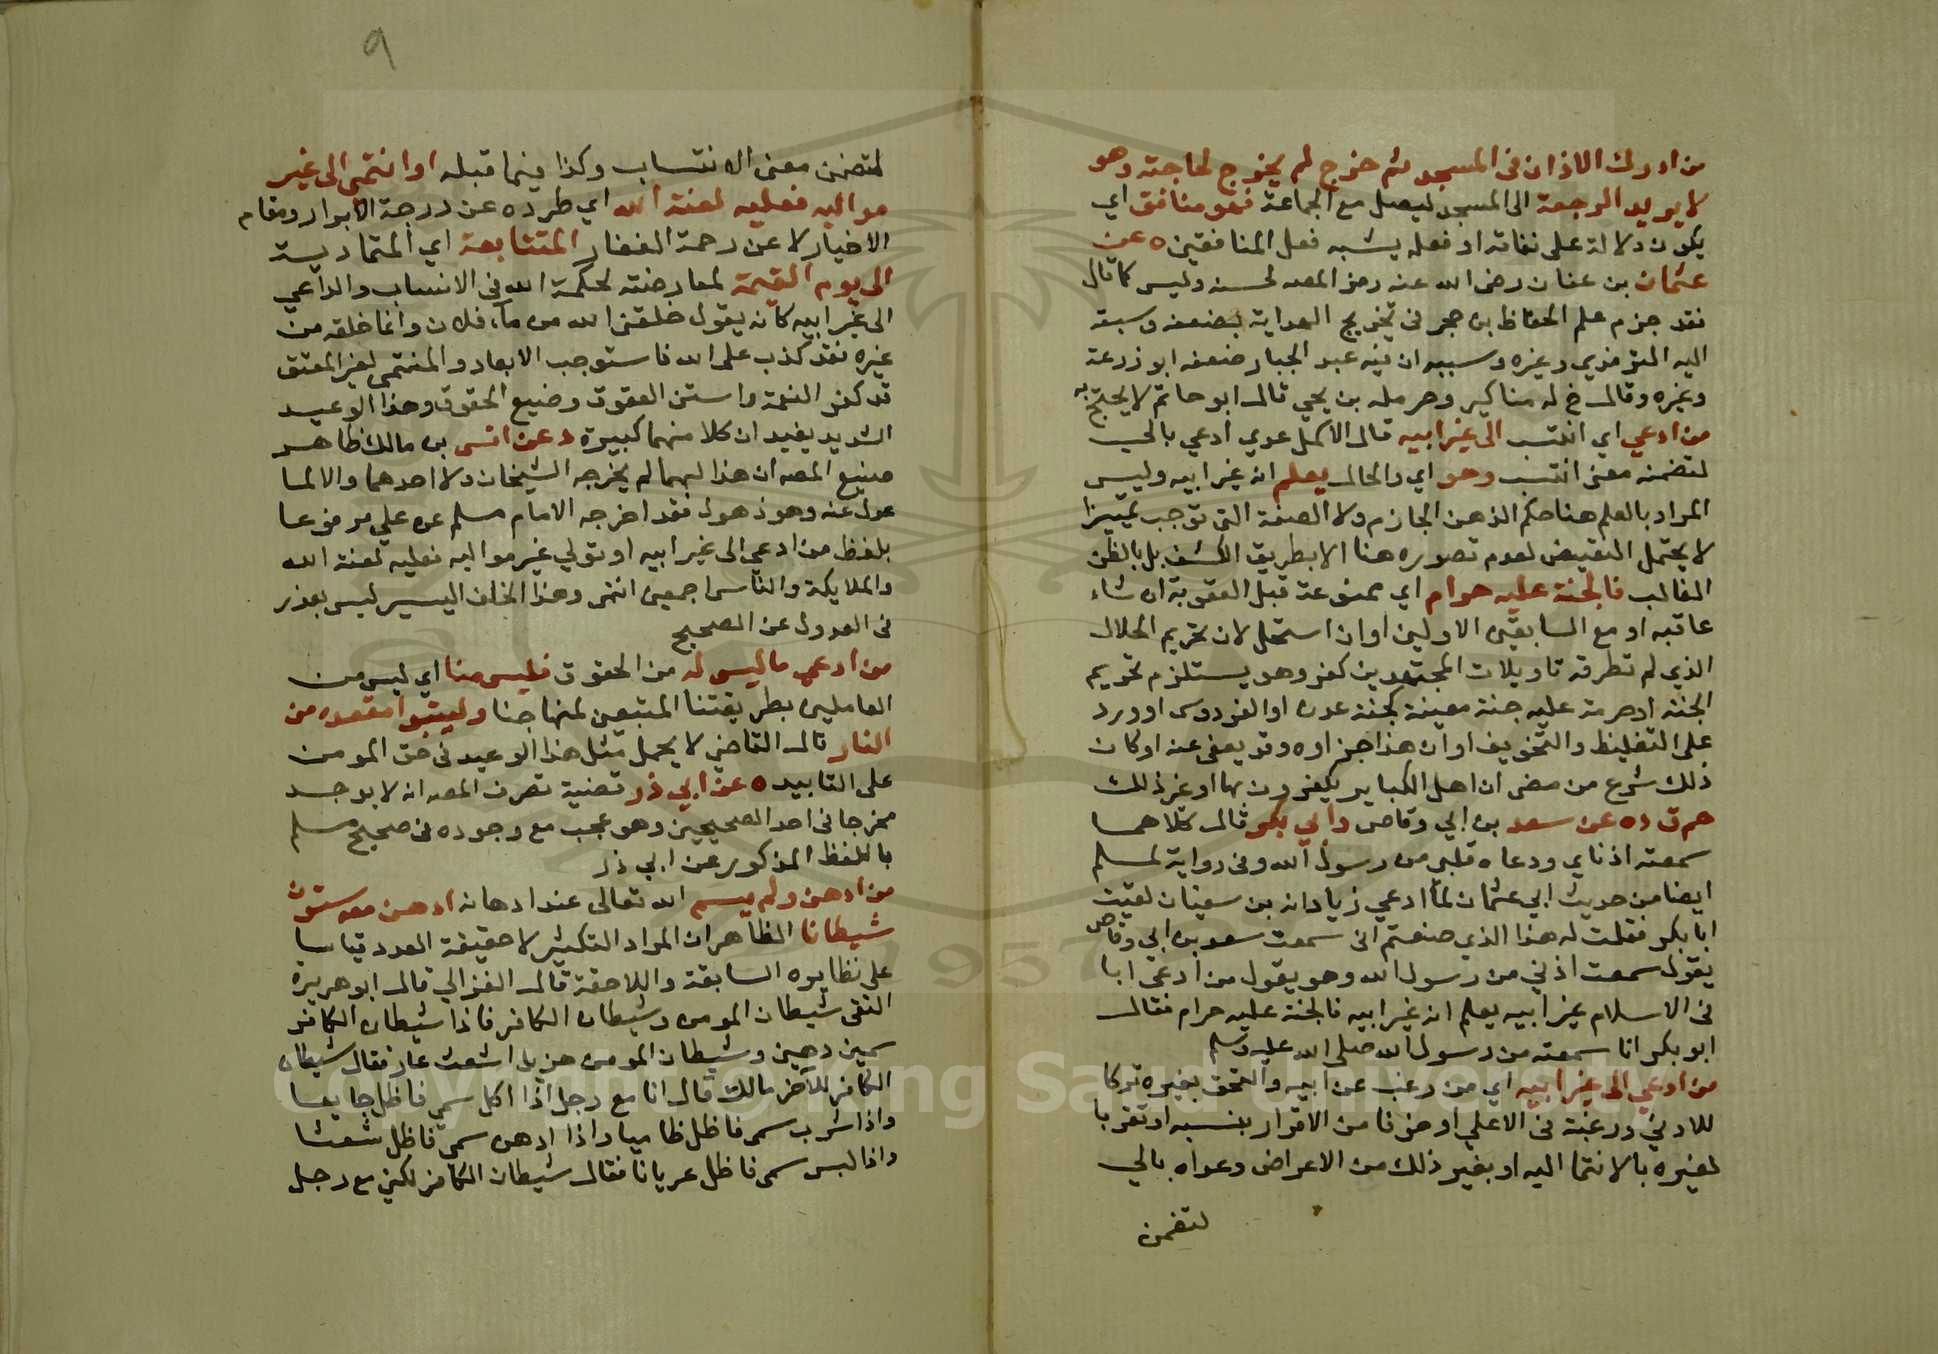 من ادرك الاذان في المسجد ثم خرج لم يخرج لحاجة وهو
لا يريد الرجعة الى المسجد ليصل مع الجماعة فهو منافق اي
يكون دلالة على نفاقه او فعله يشبه فعل المنافقين ه عن
عثمان بن عفان رضي الله عنه رمز المصه لحسنه وليس كما قال
فقد جزم علم الحفاظ بن حجر في تخريج الهداية بضعفه وسبقه
اليه الترمذي وغيره وسببه ان فيه عبد الجبار ضعفه ابو زرعة
وغيره وقال خ له مناكير وحرمله بن يحي قال ابو حاتم لا يحتج به
من ادعي اي انتسب الى غير ابيه قال الاكمل عدي ادعي بالى
لتضمنه معنى انتسب وهو اي والحال يعلم انه غير ابيه وليس
المراد بالعلم هنا حكم الذهن الجازم ولا الصفة التي توجب تمييزا
لا يحتمل النقيض لعدم تصوره هنا الا بطريق الكشف بل بالظن
الغالب فالجنة عليه حرام اي ممنوعة قبل العقوبة ان شاء
عاقبه او مع السابقين الاولين او ان استحل لان تحريم الحلال
الذي لم تطرقه تاويلات المجتهدين كفر وهو يستلزم تحريم
الجنة او حرمة عليه جنة معينة كجنة عدن او الفردوس او ورد
على التغليظ والتخويف او ان هذا جزاوه وقد يعفى عنه او كان
ذلك شرع من مضى ان اهل الكباير يكفرون بها او غير ذلك
حم ق ده عن سعد بن ابي وقاص وابي بكر قال كلاهما
سمعته اذناي ووعاه قلبي من رسول الله وفي رواية لمسلم
ايضا من حديث ابي عثمان لما ادعي زياد انه بن سفيان لقيت
ابا بكر فقلت له هذا الذي صنعتم اني سمعت سعد بن ابي وقاص
يقول سمعت اذني من رسول الله وهو يقول من ادعى ابا
في الاسلام غير ابيه يعلم انه غير ابيه فالجنة عليه حرام فقال
ابو بكر انا سمعته من رسول الله صلى الله عليه وسلم
من ادعي الى غير ابيه اي من رغب عن ابيه والتحق بغيره تركا
للادني ورغبة في الاعلي او خوفا من الاقرار بنسبه او تقربا
لغيره بالانتما اليه او بغير ذلك من الاعراض وعداه بالي
لتضمن
٩
لتضمن معنى الانتساب وكذا فيما قبله او انتمي الى غير
مواليه فعليه لعنة الله اي طرده عن درجة الابرار ومقام
الاخيار لا عن رحمة الغفار المتتابعة اي المتمادية
الى يوم القيمة لمعارضته لحكمة الله في الانساب والداعي
الى غير ابيه كانه يقول خلقني الله من ماء فلان وانما خلقه من
غيره فقد كذب على الله فاستوجب الابعاد والمنتمى لغير المعتق
قد كفر النعمة واستن العقوق وضيع الحقوق وهذا الوعيد
الشديد يفيد ان كلا منهما كبيرة د عن انس بن مالك ظاهر
صنيع المصه ان هذا لهما لم يخرجه الشيخان ولا احدهما والا لما
عدل عنه وهو ذهول فقد اخرجه الامام مسلم عن علي مرفوعا
بلفظ من ادعي الى غير ابيه او تولي غير مواليه فعليه لعنة الله
والملايكة والناس اجمعين انتهى وهذا الخلف اليسير ليس بعذر
في العدول عن الصحيح
من ادعي ما ليس له من الحقوق فليس منا اي ليس من
العاملين بطريقتنا المتبعين لمنهاجنا وليتبوا مقعده من
النار قال القاضي لا يحمل مثل هذا الوعيد في حق المومن
على التابيد ه عن ابي ذر قضية تصرف المصه انه لا يوجد
مخرجا في احد الصحيحين وهو عجب مع وجوده في صحيح مسلم
باللفظ المذكور عن ابي ذر
من ادهن ولم يسم الله تعالى عند ادهانه ادهن معه ستون
شيطانا الظاهر ان المراد التكثير لا حقيقة العدد قياسا
على نظايره السابقة واللاحقة قال الغزالي قال ابو هريرة
التقى شيطان المومن وشيطان الكافر فاذا شيطان الكافر
سمين دهين وشيطان المومن هزيل اشعث عار فقال شيطان
الكافر للاخر مالك قال انا مع رجل اذا اكل سمي فاظل جايعا
واذا شرب سمي فاظل ظاميا واذا ادهن سمي فاظل شعثا
واذا لبس سمي فاظل عريانا فقال شيطان الكافر لكني مع رجل
Copyright © King Saud University
1957